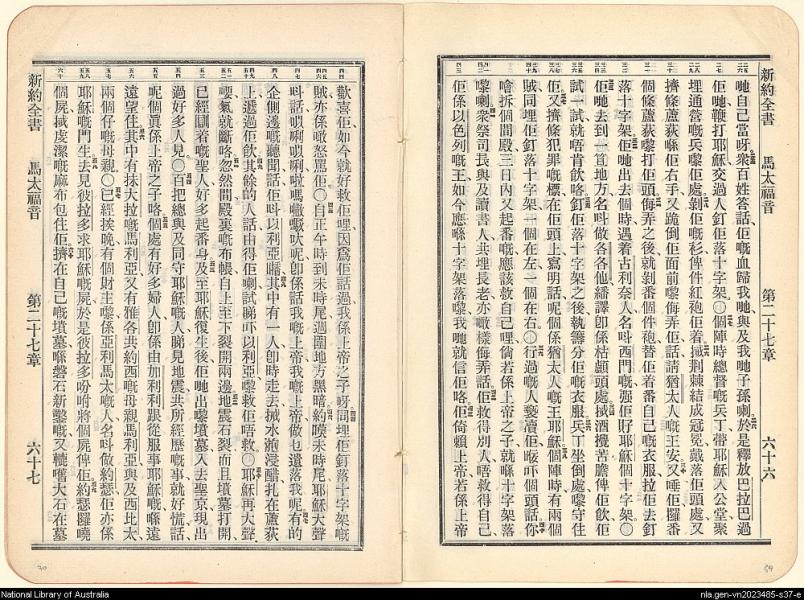 新約全書 馬太福音 第二十七章 六十六
哋自己當呀衆百姓答話佢嘅血歸我哋與及我哋子孫喇於是釋放巴拉巴過
佢哋鞭打耶穌交過人釘佢落十字架〇個陣時總督嘅兵丁帶耶穌入公堂聚
埋通營嘅兵嚟佢處剝佢嘅衫俾件紅袍佢着搣荆棘結成冠冕戴落佢頭處又
擠條蘆荻喺佢右手又跪倒佢面前嚟侮弄佢話請猶太人嘅王安又唾佢攞番
個條蘆荻嚟打佢頭侮弄之後就剝番個件袍督佢着番自己嘅衣服拉佢去釘
落十字架佢哋出去個時遇着古利奈人名呌西門嘅强佢孭耶穌個十字架〇
佢哋去到一笪地方名呌做各各他繙譯卽係枯顱頭處搣酒攪苦膽俾佢飲佢
試一試就唔肯飲咯釘佢落十字架之後執籌分佢嘅衣服兵丁坐倒處嚟守住
佢又擠條犯罪嘅標在佢頭上寫明話呢個係猶太人嘅王耶穌個陣時有兩個
賊同埋佢釘落十字架一個在左一個在右〇行過嘅人佢吓個頭話你
噲拆個間殿三日內又起番嘅應該救自己哩倘若係上帝之子就喺十字架落
嚟喇衆祭司長與及讀書人共埋長老亦噉樣侮弄話佢救得別人唔救得自己
佢係以色列嘅王如今應喺十字架落嚟我哋就信佢咯佢倚賴上帝若係上帝
歡喜佢如今就好救佢哩因爲佢話過我係上帝之子呀同埋佢釘落十字架嘅
賊亦係噉怒罵佢〇自正午時到未時尾週圍地方黑暗約嘆未時尾耶穌大聲
呌話以唎以唎啦嗎嘅吠呢卽係話我嘅上帝我嘅上帝做乜遺落我呢有的
企側邊嘅聽聞話佢呌以利亞𡃓其中有一人卽時走去搣水泡浸醋扎在蘆荻
上遞過佢飲其餘的人話由得佢喇試睇吓以利亞嚟救佢唔救〇耶穌再大聲
嗌氣就斷咯忽然間殿裏嘅布帳自上至下裂開兩邊地震石裂而且墳墓打開
已經瞓着嘅聖人好多起番身及至耶穌復生後佢哋出嚟墳墓入去聖京現出
過好多人見〇百把總與及同守耶穌嘅人睇見地震共所經歷嘅事就好慌話
呢個眞係上帝之子咯個處有好多婦人卽係由加利利跟從服事耶穌嘅喺遠
遠望住其中有抹大拉嘅馬利亞又有雅各共約西嘅母親馬利亞與及西比太
兩個仔嘅母親〇已經挨晚有個財主嚟係亞利馬太嘅人名呌做約瑟佢亦係
耶穌嘅門生去見彼拉多求耶穌嘅屍於是彼拉多吩咐將個屍俾佢約瑟攞曉
個屍搣度潔嘅麻布包住佢擠在自己嘅墳墓喺磐石新鑿嘅又轆嚿大石在墓
新約全書 馬太福音 第二十七章 六十七
National Library of Australia
nla.gen-vn2023485-s37-e